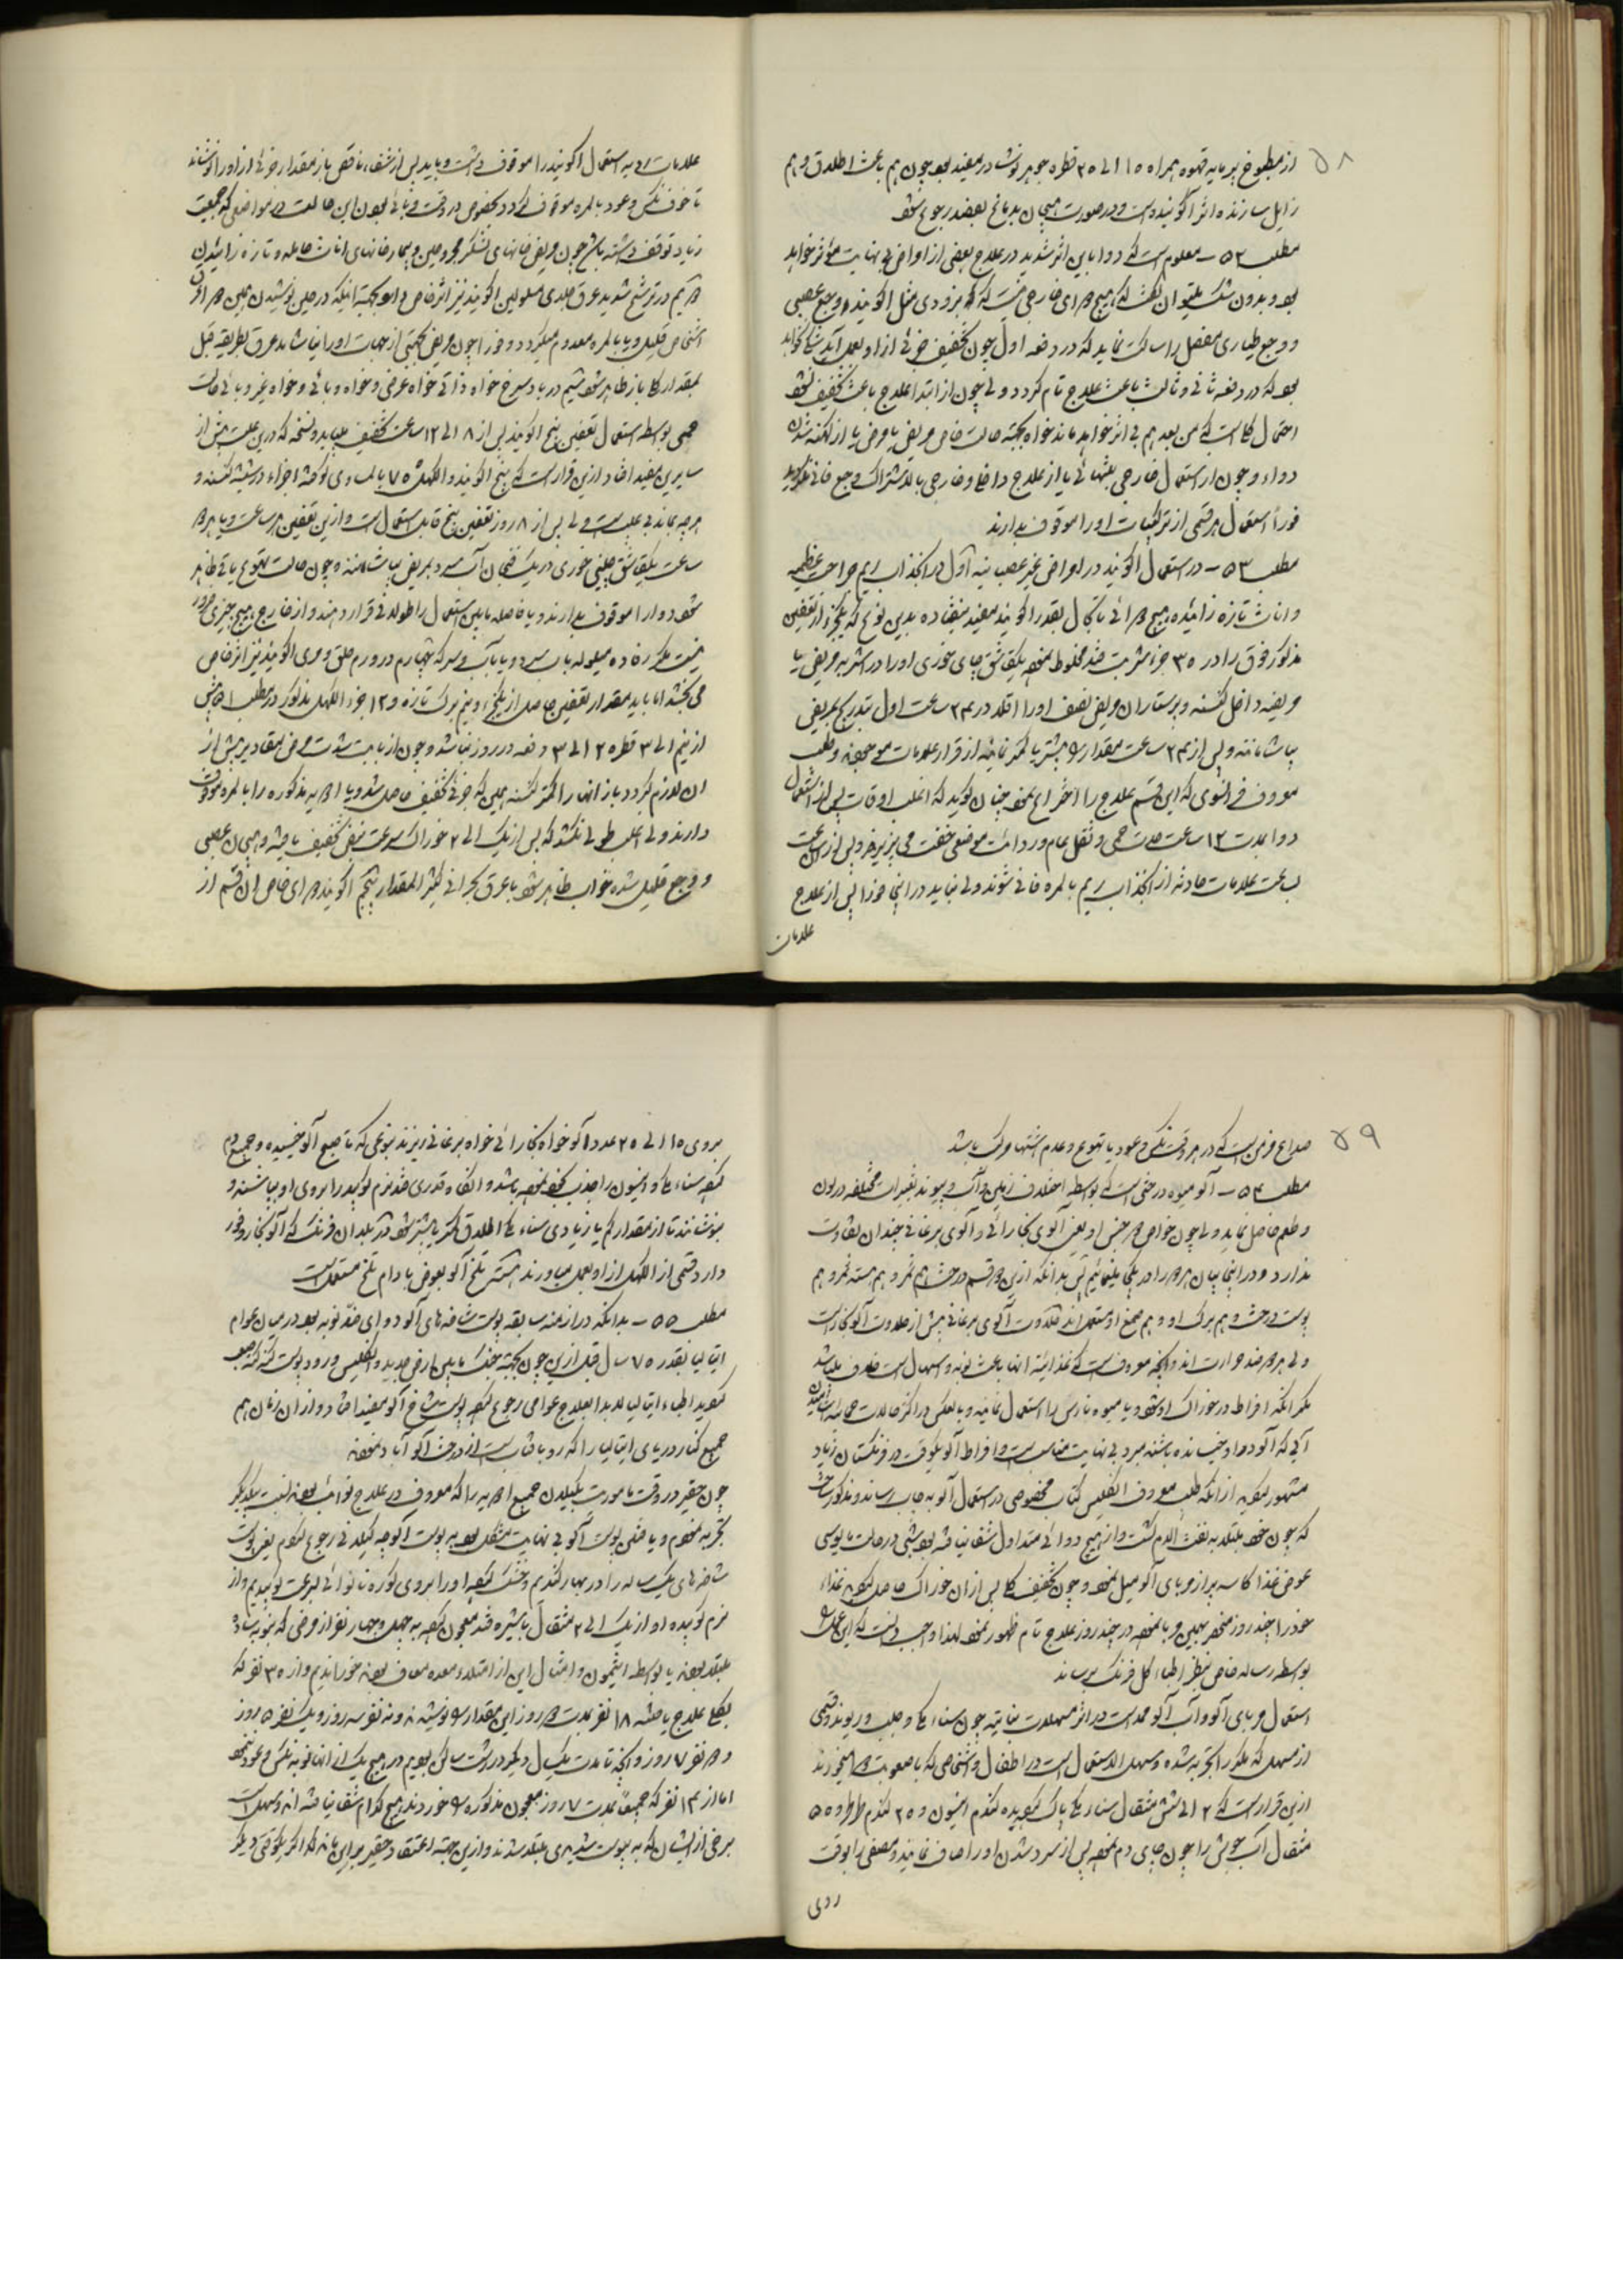 ۵۸
از مطبوخ پرمایه قهوه همراه ۱۵ الی ۲۵ قطره جوهر نوشادر مفید بود چون هم باعث اطلاق و هم
زایل سازنده اثر اکونیند است و در صورت هیجان بدمانح بعضد رجوع شود
مطلب ۵۲ – معلوم است که دوا باین اثر شدید در علاج بعضی از امراض بی نهایت مؤثر خواهد
بود و بدون شک میتوان گفت که هیچ دوای خارجی نیست که بزودی مثل اکونیند وجع عصبی
و وجع طیاری مفصل را ساکت نماید که در دفعه اول چون تخفیف جزئی از او بعمل آید شکی نخواهد
بود که در دفعه ثانی و ثالث باعث علاج تام گردد ولی چون از ابتدا علاج باعث تخفیف نشود
احتمال کلی است که من بعد هم بی اثر خواهد ماند خواه بجهة حالت خاص مریض یا مرض یا از کهنه شدن
دواء و چون از استعمال خارجی بتنهائی یا از علاج داخلی و خارجی بالاشتراک وجع فانی نگردید
فوراً استعمال هر قسمی از ترکیبات او را موقوف بدارند
مطلب ۵۳ – در استعمال اکونیند در امراض غیر عصبانیه اول در انجذاب ریم جراحت عظیمه
و اناث تازه زائیده هیچ دوائی تا بحال بقدر اکونیند مفید نیفتاده بدین نوع که یکجزء از تعفین
مذکور فوق را در ۳۵ جزء شربت قند مخلوط نموده یکقاشق چای خوری او را در اشربه مریض یا
مریضه داخل کنند و پرستاران مریض نصف او را اقلا در ۲۴ ساعت اول بتدریج بمریض
بیاشامانند و پس از ۲۴ ساعت مقدار را بیشتر یا کمتر نمایند از قرار علامات موجوده و طبیب
معروف فرانسوی که این قسم علاج را اختراع نموده چنان گوید که اغلب اوقات پس از استعمال
دوا بمدت ۱۲ ساعت حدت حمی و ثقل عام و ردائت موضعی خفت می پذیرند و پس از ساعت
بساعت علامات حادثه از انجذاب ریم بالمره فانی شوند ولی نباید در این فوراً پس از علاج
علامات
علامات ردیه استعمال اکونیند را موقوف داشت و باید پس از شفاء ناقص باز مقدار جزئی از او را نوشاند
تا خوف نکس و عود بالمره موقوف گردد بخصوص در وقت وبائی بودن این حالت در مواضعی که جمعیت
زیاد توقف داشته باشد چون مریض خانهای لشکر مجروحین و بیمارخانهای اناث حامله و تازه زائیدن
دویم در ترشح شدید عرق جلدی مسلولین اکونیند نیز اثر خاص دارد بجهة اینکه در حین نوشیدن همین دوا عرق
اشخاص قلیل و یا بالمره معدوم میگردد و فوراً چون مریض بجهتی از جهات او را ننماشد عرق بطریقه قبل
بمقدار کلی باز ظاهر شود سیم در باد سرخ خواه ذاتی خواه عرضی و خواه وبائی و خواه غیر وبائی حالت
حمی بواسطه استعمال تعفین بیخ اکونیند پس از ۸ الی ۱۲ ساعت تخفیف مییابد و نسخه که در این علت بیش از
سایرین مفید افتاد ازین قرار است که بیخ اکونیند و الکهل ۷۵ بالمساوی کوفته اجزاء در شیشه کنند و
هر چه بماند بی عیب است ولی پس از ۸ روز تعفین بیخ قابل استعمال است و ازین تعفین هر ساعت و یا هر دو
ساعت یکقاشق چای خوری در یک فنجان آب سرد بمریض بیاشامانند و چون حالت تهوع یا قی ظاهر
شود دوا را موقوف بدارند و یا فاصله مابین استعمال را طولانی قرار دهند و از خارج هیچ چیزی ضرور
نیست مگر رفاده مبلوله بآب سرد و یا بآب و سرکه چهارم در ورم حلق و مری اکونیند نیز اثر خاص
می بخشد اما باید مقدار تعفین حاصل از یکجزء و نیم برگ تازه و ۱۲ جزء الکهل مذکور در مطلب ۵۱ بیش
از نیم الی ۳ قطره ۲ الی ۳ دفعه در روز نباشد و چون از بابت شدت مرض مقادیر بیش از
آن لازم گردد باز انها را کمتر کنند همین که جزئی تخفیف حاصل شد و یا ادویه مذکوره را بالمره موقوف
دارند ولی اغلب طولی نکشد که پس از یک الی ۲ خوراک سرعت نبض تخفیف یافته و هیجان عصبی
و وجع قلیل شده خواب ظاهر شود با عرق بحرانی کثیر المقدار پنجم اکونیند دوای خاص ان قسم از
۵۹
صداع مزمن است که در هر وقت نکس و عود با تهوع و عدم اشتها مرکب باشد
مطلب ۵۴ – آلو میوه درختی است که بواسطه اختلاف زمین و آب و پیوند تغییرات مختلفه در لون
و طعم حاصل نماید ولی چون خواص هر جنس او یعنی آلوی بخارائی و آلوی برغانی چندان تفاوت
ندارد و در اینجا بیان هر دو را در یکجا مینمائیم پس بدانکه ازین هر دو قسم درخت هم ثمر و هم هسته ثمر و هم
پوست درخت و هم برگ او و هم صمغ او مستعمل اند حلاوت آلوی برغانی بیش از حلاوت آلو بخاراست
ولی هر دو ضد حرارت اند و انچه معروف است که غذائیة انها باعث نوبه و اسهال است خلاف میباشد
مگر آنکه افراط در خوراک او شود و یا میوه نارس را استعمال نمایند و بالعکس در اکثر حالات حمائیه اشامیدن
آبی که آلو در او خیسانده باشند مبرد بی نهایت مناسب است و افراط آلو بیکوقت در فرنگستان زیاد
مشهور گردید از آنکه طبیب معروف انگلیس کتاب مخصوصی در استعمال آلو به چاپ رساند و مذکور ساخت
که چون خود مبتلا به نفث الدم گشت و از هیچ دوائی متداول شفا نیافته بود شبی در حالت مأیوسی
عوض غذا کاسه پر از مربای آلو میل نمود و چون تخفیف کلی پس ازان خوراک حاصل گردید غذاء
خود را چند روز منحصر بهمین مربا نموده در چند روز علاج تام ظهور نمود لهذا واجب دانست که این عمل را
بواسطه رساله خاص بنظر اطباء کل فرنگ برساند
استعمال مربای آلو و آب آلو ممد است در اثر مسهلات نباتیه چون سناء مکی و جلب و ریوند و قسمی
از مسهل که مکرر را تجربه شده و سهل الاستعمال است در اطفال و اشخاصی که با صعوبت دوا میخورند
ازین قرار است که ۲ الی شش مثقال سناء مکی پاک کوبیده گندم انیسون و ۲۵ گندم طرطر و ۵۵
مثقال آب جوش را چون چای دم نموده پس از سرد شدن او را صاف نمایند و مصفی را بوقت
روی
بروی ۱۵ الی ۲۵ عدد آلو خواه بخارائی خواه برغانی ریزند بنوعی که تا صبح آلو خیسیده و جمیع دم
کرده سناء مکی و انیسون را جذب بخود نموده باشد و انگاه قدری قند نرم کوبیده را بروی او بپاشند و
بنوشانند تا از مقدار کم یا زیادی سناء مکی اطلاق کمتر یا بیشتر شود در بلدان فرنگ که آلو بخارا وفور
دارد قسمی از الکهل از او بعمل میاورند هسته تلخ آلو بعوض بادام تلخ مستعمل است
مطلب ۵۵ – بدانکه در ازمنه سابقه پوست شاخه های آلو دوای ضد نوبه بود در میان عوام
ایتالیا بقدر ۷۵ سال قبل ازین چون بجهة جنگ مابین ارض جدید و انگلیس ورود پوست کنه کنه صعب
گردید اطباء ایتالیا لابدا بعلاج عوامی رجوع کرده پوست شاخ آلو مفید افتاد و از ان زمان هم
جمیع کنار دریای ایتالیا را که رو بآفتاب است از درخت آلو آباد نمودند
چون حقیر در وقت ماموریت بگیلان جمیع ادویه را که معروف در علاج نوائب بودند نسبت بیکدیگر
تجربه نمودم و یافتن پوست آلو بی نهایت مشکل بود به پوست آلوچه گیلانی رجوع کردم یعنی پوست
شاخه های یک ساله را در بهار کندیم و خشک کرده او را بروی کوره نانوائی بسرعت کوبیدیم و از
نرم کوبیده او از یک الی ۲ مثقال با شیره قند معجون کرده به چهل و چهار نفر از مرضی که بنوبه ساده
مبتلا بودند یا بواسطه افیون و امثال این از امتلاء معده معاف بودند خوراندیم و از ۳۵ نفر که
بکلی علاج یافتند ۱۸ نفر بمدت دو روز این مقدار را نوشیدند و نه نفر سه روز و یک نفر ۵ روز
و دو نفر ۷ روز و انچه تا مدت یکسال دیگر در رشت ساکن بودیم در هیچ یک از انها نوبه نکس و عود ننمود
اما از ۱۴ نفر که جمیعا بمدت ۷ روز معجون مذکوره را خوردند هیچ کدام شفا نیافتند و سهل است
برخی از ایشان که به یبوست شدیدی مبتلا شدند و ازین جهة اعتقاد حقیر بر این ماند که اگر بیکوقتی دیگر